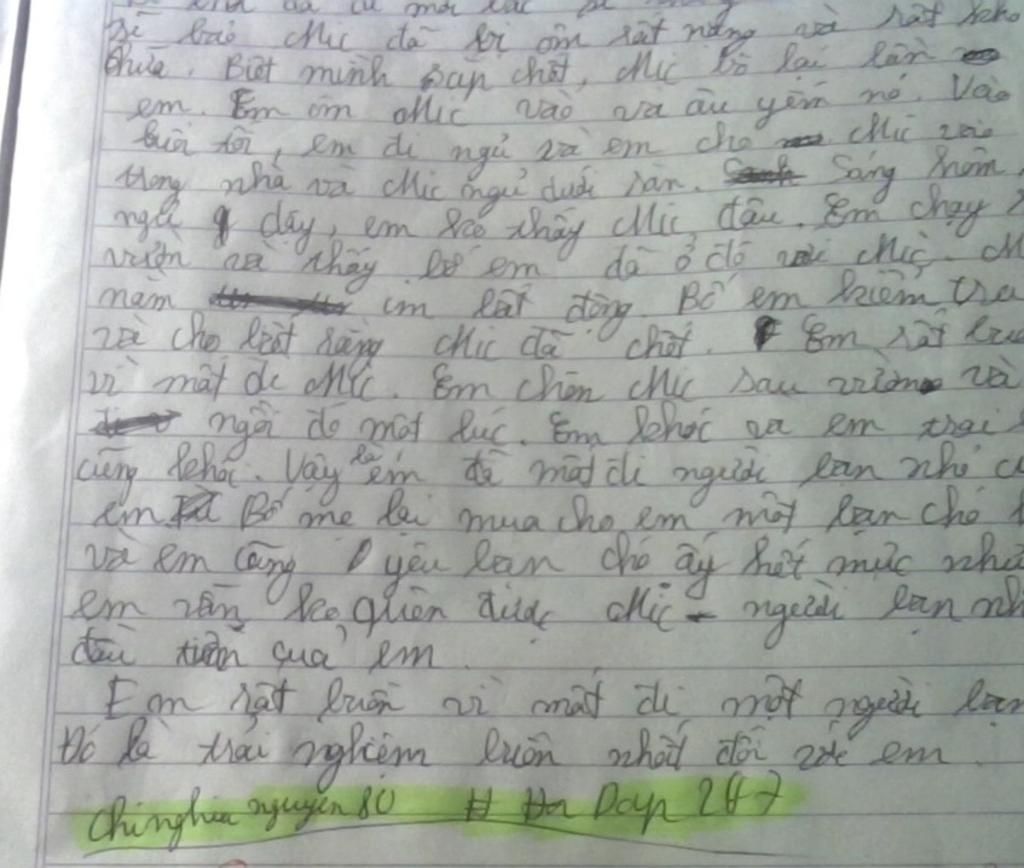 Sĩ bảo Mic đã bị ốm rất nặng và rất khó
chữa. Biết mình sắp chết, Mic bỏ lại lần
em. Em ôm Mic vào và âu yếm nó. Vào
buổi tối, em đi ngủ và em cho Mic vào
trong nhà và Mic ngủ dưới sàn. Sáng hôm
ngủ dậy, em ko thấy Mic đâu. Em chạy
vườn và thấy bố em đã ở đó với Mic. M
nằm im bất động. Bố em kiểm tra
và cho biết rằng Mic đã chết. Em rất bu
vì mất đi Mic. Em chôn Mic sau vườn và
ngồi đó một lúc. Em khóc và em trai
cũng khóc. Vậy là em đã mất đi người bạn nhỏ c
em Bố mẹ lại mua cho em một bạn chó
và em cũng yêu bạn chó ấy hết mức như
em vẫn ko quên được Mic - người bạn nh
đầu tiên của em
Em rất buồn vì mất đi một người bạn
Đó là trải nghiệm buồn nhất đối với em
Chinghia nguyen 80 Dap 247